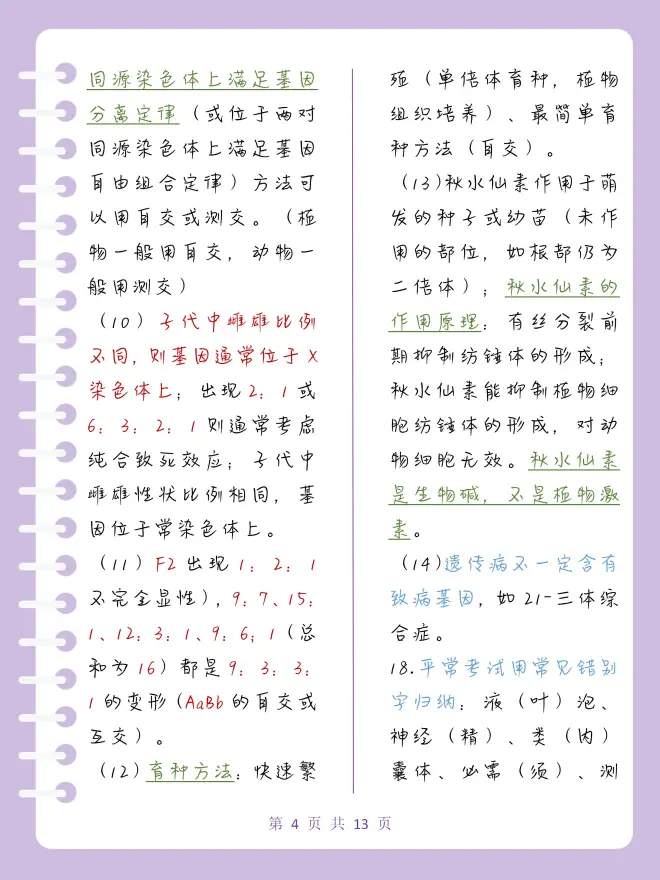 同源染色体上满足基因
分离定律（或位于两对
同源染色体上满足基因
自由组合定律）方法可
以用自交或测交。（植
物一般用自交，动物一
般用测交）
（10）子代中雌雄比例
不同，则基因通常位于 X
染色体上；出现 2：1 或
6：3：2：1 则通常考虑
纯合致死效应；子代中
雌雄性状比例相同，基
因位于常染色体上。
（11）F2 出现 1：2：1
不完全显性），9：7、15：
1、12：3：1、9：6；1（总
和为 16）都是 9：3：3：
1 的变形（AaBb 的自交或
互交）。
（12）育种方法：快速繁
殖（单倍体育种，植物
组织培养）、最简单育
种方法（自交）。
（13)秋水仙素作用于萌
发的种子或幼苗（未作
用的部位，如根部仍为
二倍体）；秋水仙素的
作用原理：有丝分裂前
期抑制纺锤体的形成；
秋水仙素能抑制植物细
胞纺锤体的形成，对动
物细胞无效。秋水仙素
是生物碱，不是植物激
素。
（14)遗传病不一定含有
致病基因，如 21-三体综
合症。
18.平常考试用常见错别
字归纳：液（叶）泡、
神经（精）、类（肉）
囊体、必需（须）、测
第 4 页 共 13 页